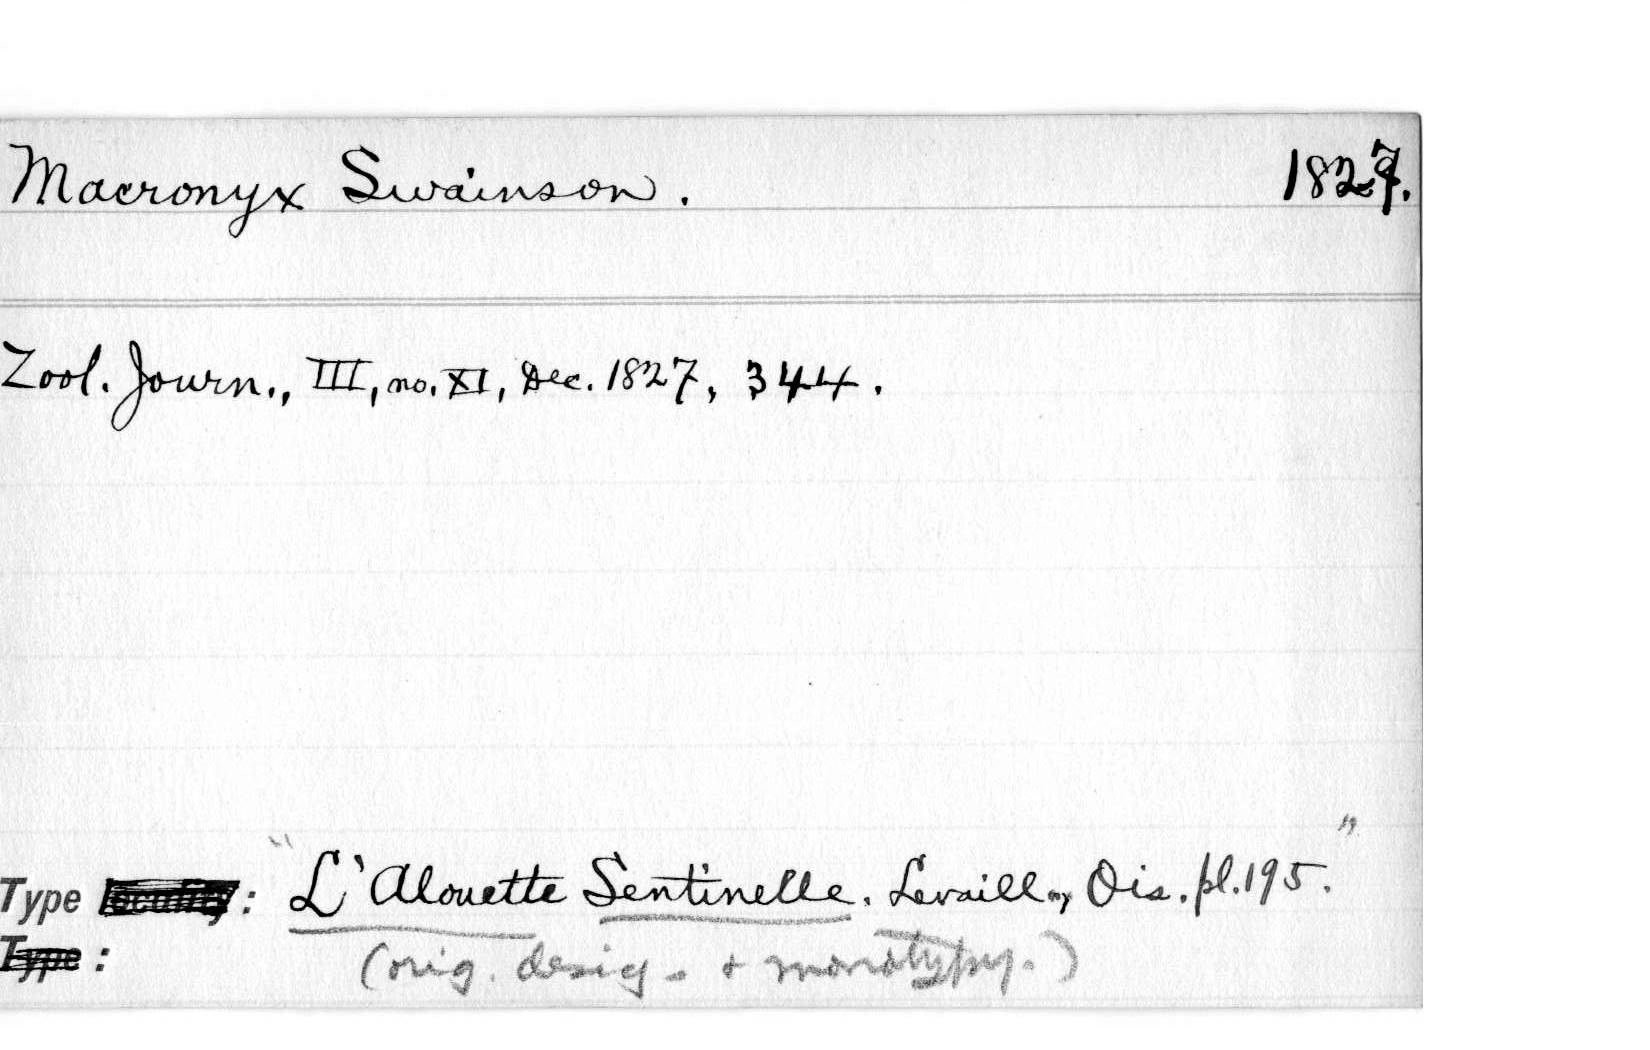 Macronyx Swainson. 1827.
Zool. Journ., III, no. XI, Dec. 1827, 344.
Type locality: "L'Alouette Sentinelle. Levaill., Ois. pl. 195."
Type: (orig. desig. + monotypy.)